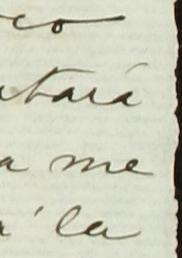 co
tará
a me
á la